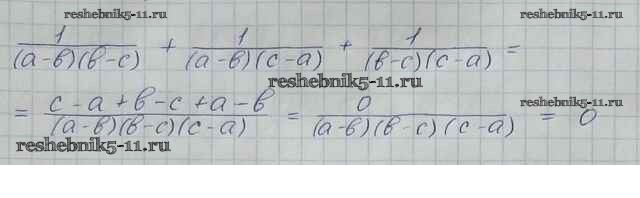 reshebnik5-11.ru reshebnik5-11.ru
1/((а-в)(в-с)) + 1/((а-в)(с-а)) + 1/((в-с)(с-а)) =
reshebnik5-11.ru
= (с-а+в-с+а-в)/((а-в)(в-с)(с-а)) = 0/((а-в)(в-с)(с-а)) = 0
reshebnik5-11.ru
reshebnik5-11.ru